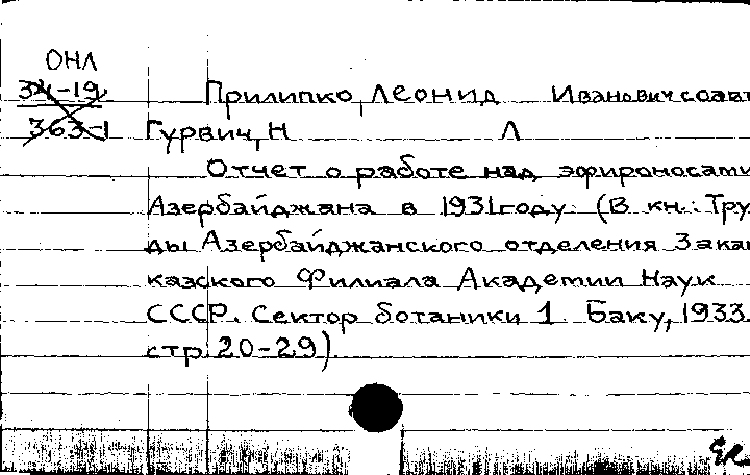 ОНЛ
34-19
363-1
Прилипко, Леонид Иванович соавт
Гурвич, Н Л
Отчет о работе над эфироносами
Азербайджана в 1931 году. (В кн.: Тру
ды Азербайджанского отделения Закав
казского Филиала Академии Наук
СССР. Сектор ботаники 1 Баку, 1933.
стр. 20-29).